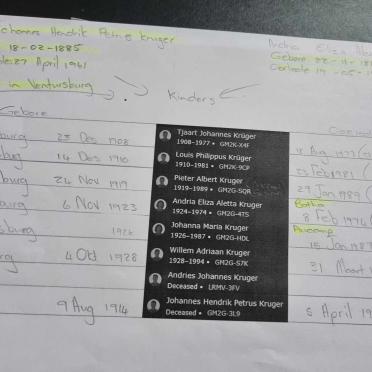 Johannes Hendrik Petrus Kruger
18-02-1885
27 April 1961
in Ventursburg
Andria Eliza
Gebore 22-11-18
Oorlede 19-05-19
Kinders
Gebore
burg 25 Des 1908
burg 14 Des 1910
burg 24 Nov 1919
burg 6 Nov 1923
sburg 1926
rg 4 Okt 1928
9 Aug 1914
Tjaart Johannes Krüger
1908-1977 • GM2K-X4F
Louis Philippus Krüger
1910-1981 • GM2K-9CP
Pieter Albert Kruger
1919-1989 • GM2G-SQR
Andria Eliza Aletta Kruger
1924-1974 • GM2G-4TS
Johanna Maria Kruger
1926-1987 • GM2G-HDL
Willem Adriaan Kruger
1928-1994 • GM2G-S7K
Andries Johannes Kruger
Deceased • LRMV-3FV
Johannes Hendrik Petrus Kruger
Deceased • GM2G-3L9
Aug 1977
Feb 1981
29 Jan 1989
Botha
8 Feb 1974
15 Jan 1987
31 Maart
5 April 19